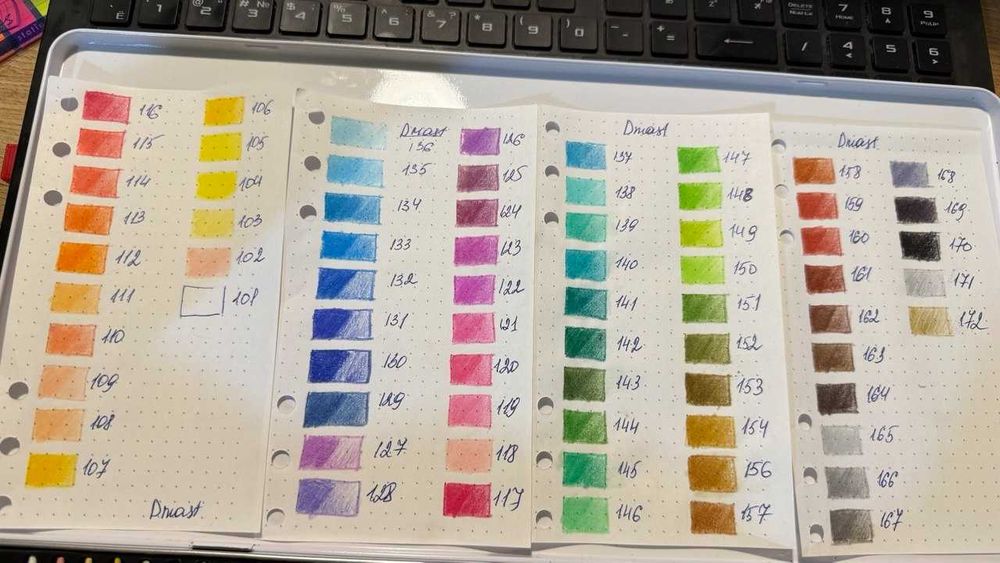 116
115
114
113
112
111
110
109
108
107
106
105
104
103
102
101
Dmast
Dmast
136
135
134
133
132
131
130
129
127
128
126
125
124
123
122
121
120
119
118
117
Dmast
137
138
139
140
141
142
143
144
145
146
147
148
149
150
151
152
153
154
156
157
Dmast
158
159
160
161
162
163
164
165
166
167
168
169
170
171
172